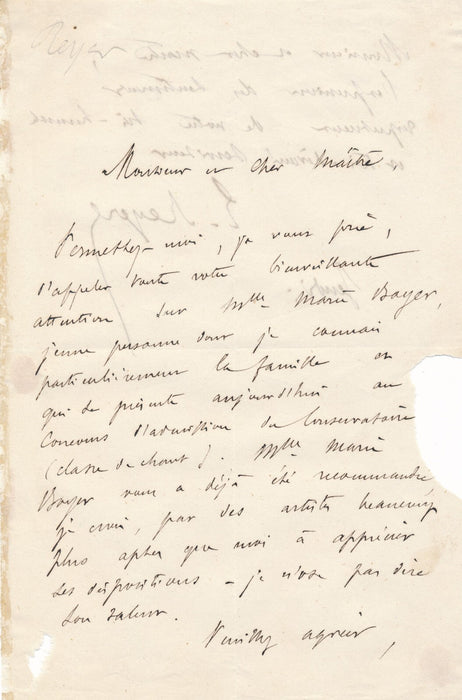 Reyer
Monsieur et cher Maître
Permettez-moi, je vous prie,
d'appeler toute votre bienveillante
attention sur Mlle Marie Boyer,
jeune personne dont je connais
particulièrement la famille et
qui se présente aujourd'hui au
Concours d'admission du Conservatoire
(classe de chant). Mlle Marie
Boyer vous a déjà été recommandée
je crois, par des artistes beaucoup
plus aptes que moi à apprécier
ses dispositions - je n'ose pas dire
son talent.
Veuillez agréer,